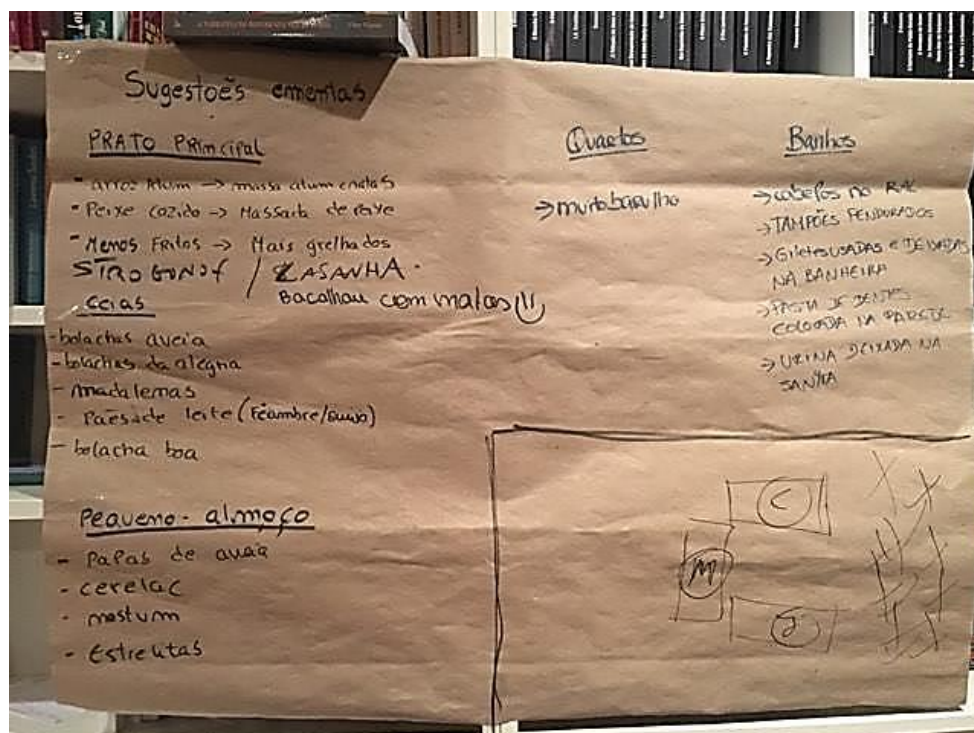 Sugestões ementas
PRATO PRImcipal
- arroz Atum → massa atum enatas
- Peixe cozido → Massada de Peixe
- Menos Fritos → Mais grelhados
STROGONOF / LASANHA.
Bacalhau com natas!!!
ceias
- bolachas aveia
- bolachas da alegria
- madalenas
- Pães de leite (Fiambre/queijo)
- bolacha boa
Pequeno - almoço
- Papas de aveia
- cerelac
- nestum
- Estrelitas
Quartos
→ muito barulho
Banhos
→ cabelos no
→ TAMPÕES PENDURADOS
→ Giletes USADAS e DEIXADAS
NA BANHEIRA
→ PASTA DE DENTES
COLOCADA NA PAREDE
→ URINA DEIXADA NA
SANITA
C
M